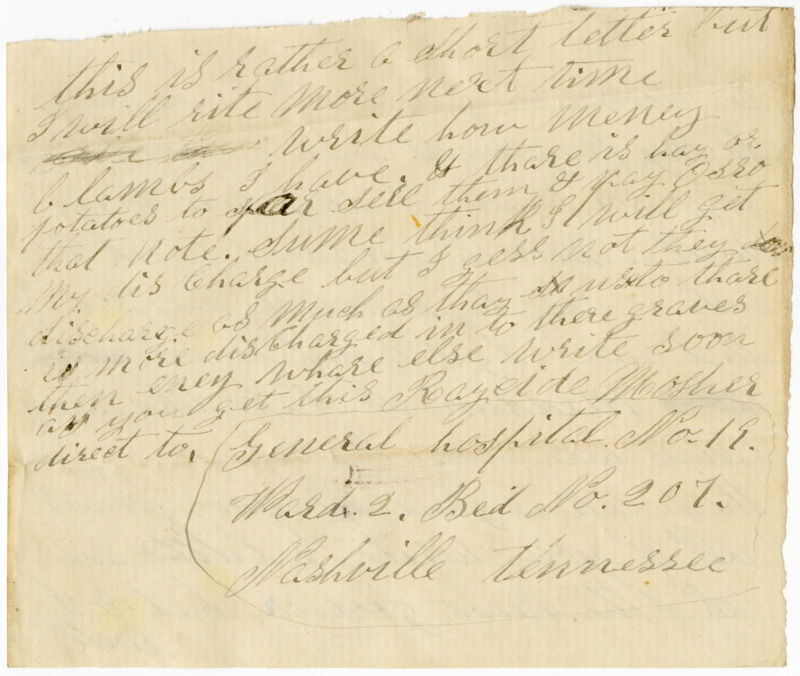 this is rather a short letter but
I will rite more next time
write how meney
lambs I have. & there is hay or
potatoes to sell them & pay
that note. Sume think I will get
my dis Charge but I gess not they
discharge as much as thay us to thare
is more discharged in to there graves
then eney whare else write soon
as you get this Rayeide Mosher
direct to, General hospital. No. 19.
Ward. 2. Bed No. 207.
Nashville tennessee